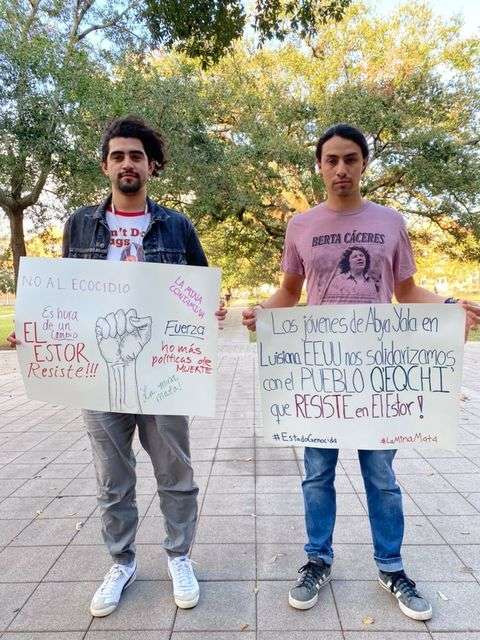 NO AL ECOCIDIO
LA MINA
CONTAMINA
Es hora
de un
cambio
EL
ESTOR
Resiste!!!
Fuerza
no más
políticas de
MUERTE
La mina
mata!
BERTA CÁCERES
Los jóvenes de Abya Yala en
Luisiana EEUU nos solidarizamos
con el PUEBLO QEQCHI'
que RESISTE en El Estor!
#EstadoGenocida
#LaMinaMata